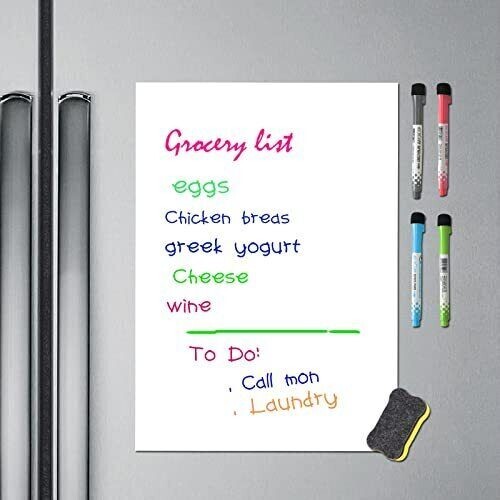 Grocery list
eggs
Chicken breas
greek yogurt
Cheese
wine
To Do:
. Call mon
. Laundry